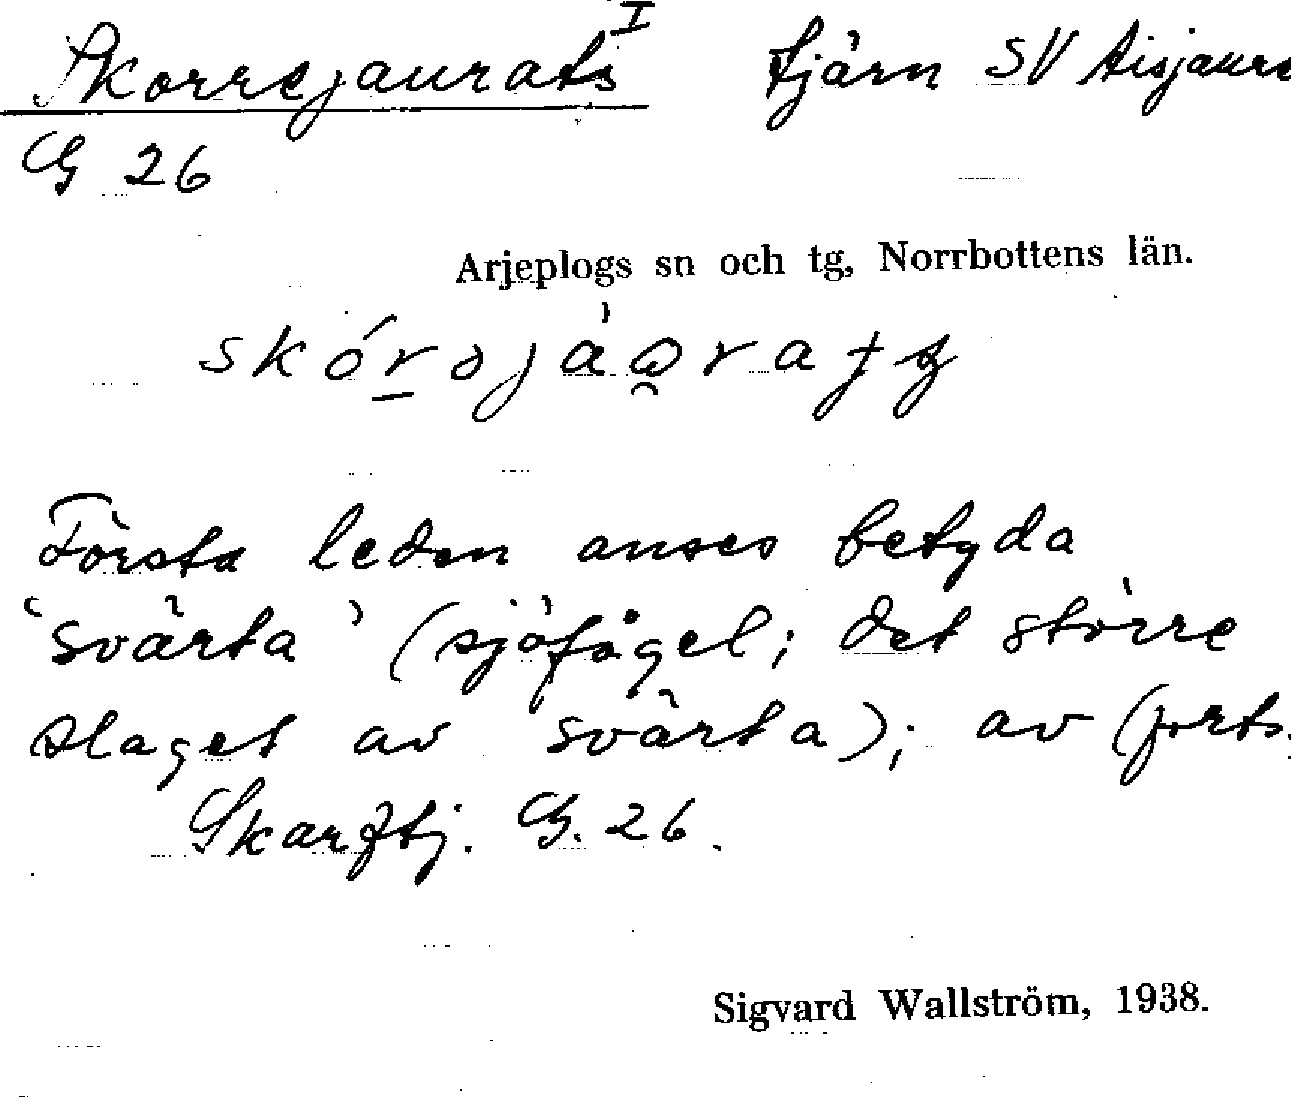 Skorrejaurats I tjärn SV Aisjaure
G 26
Arjeplogs sn och tg, Norrbottens län.
Första leden anses betyda
'svärta' (sjöfågel; det större
slaget av svärta); av (forts.
Skarftj. G. 26.
Sigvard Wallström, 1938.